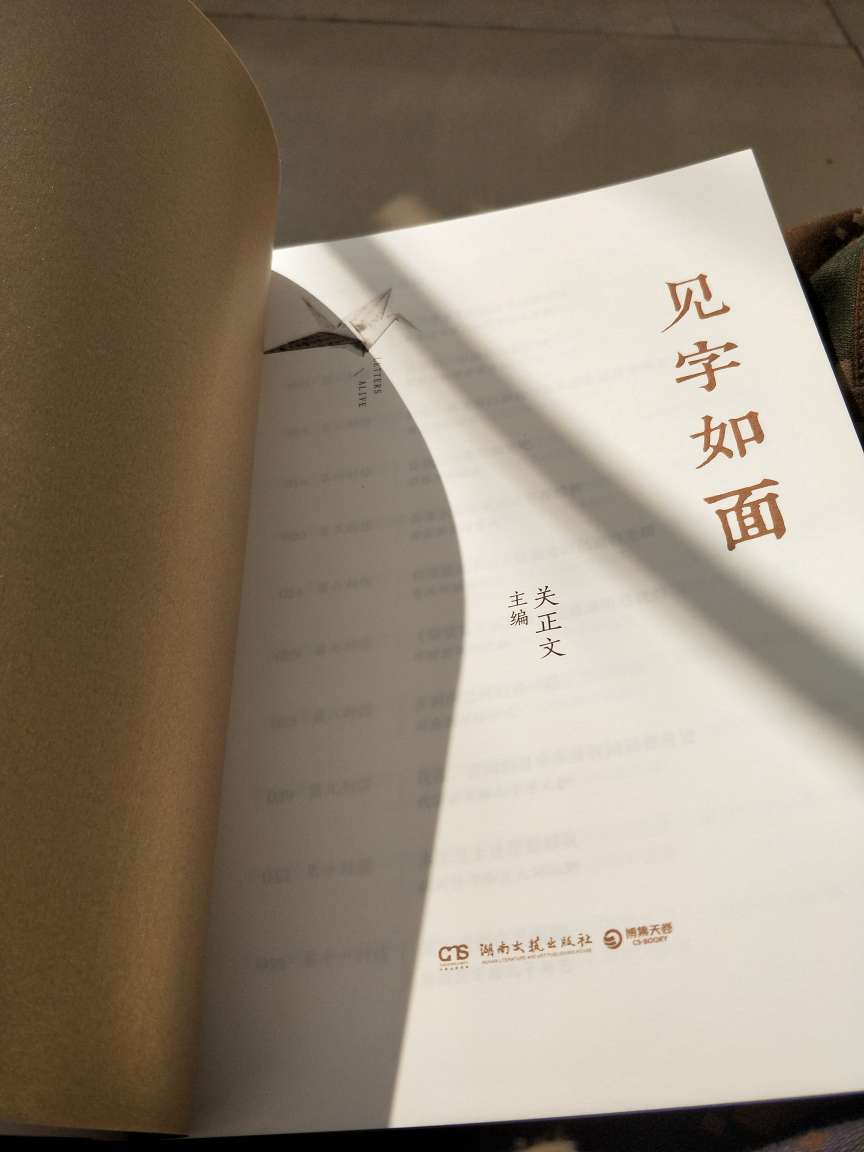 见字如面
关正文
主编
LETTERS
ALIVE
湖南文艺出版社
HUNAN LITERATURE AND ART PUBLISHING HOUSE
博集天卷
CS-BOOKY